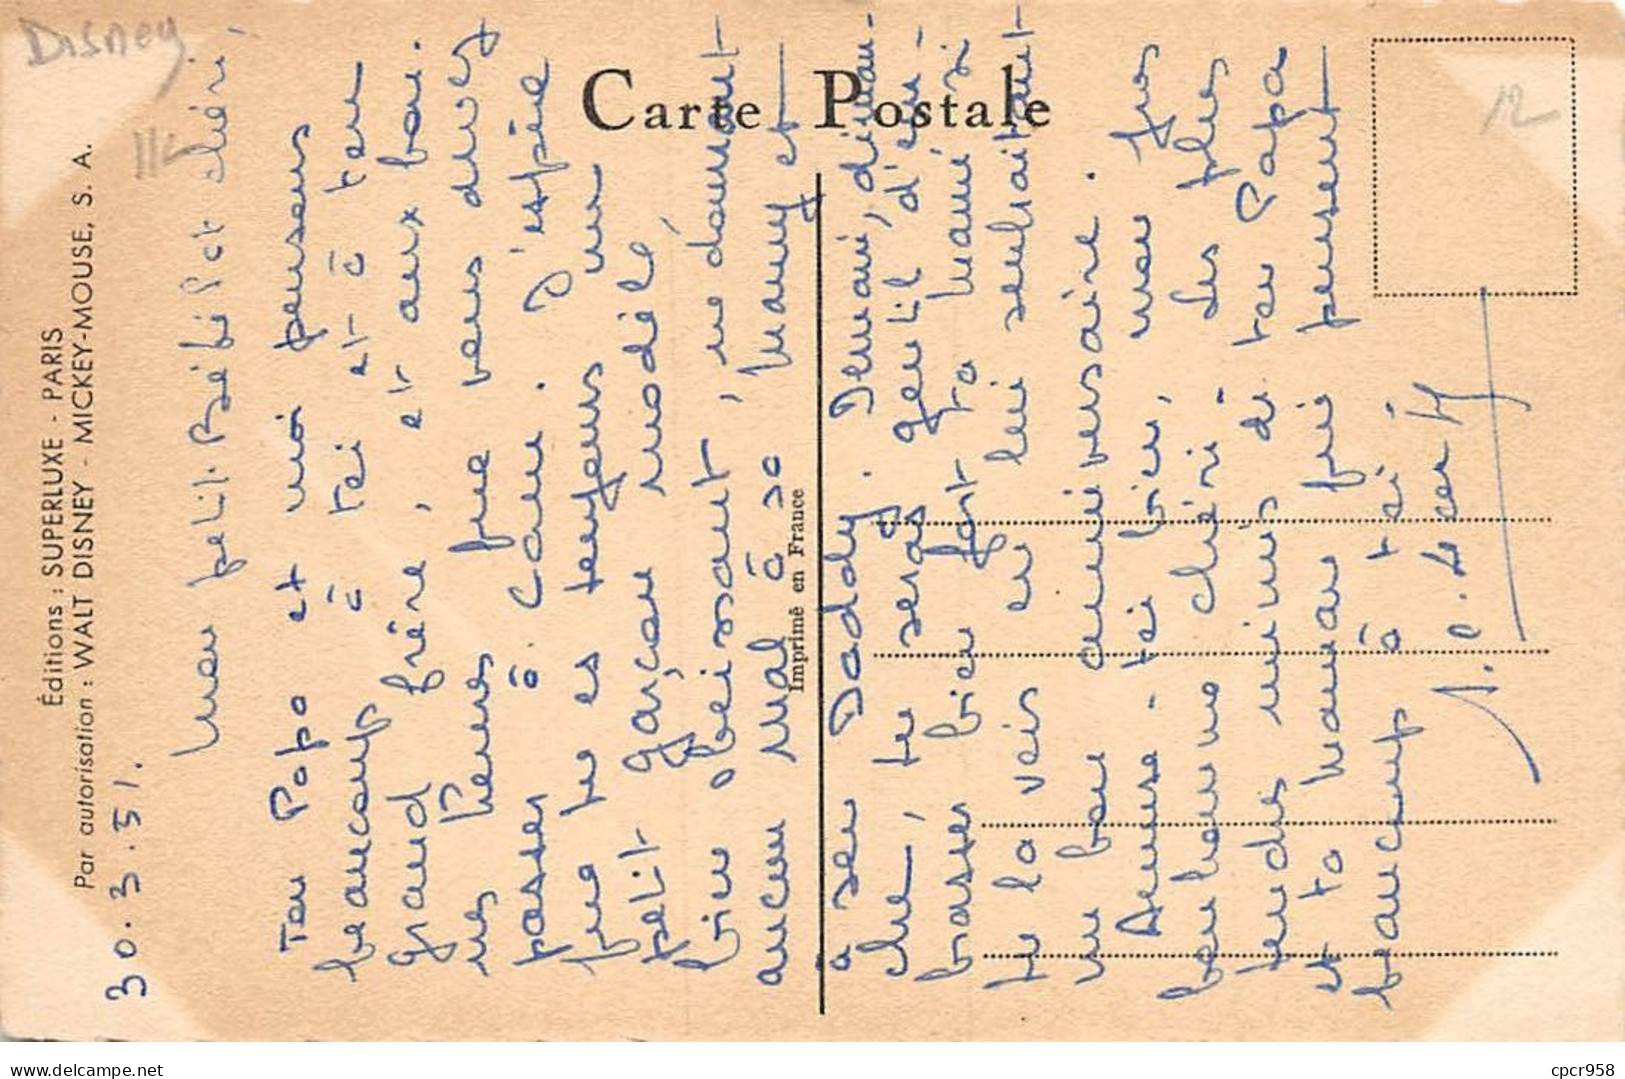 Disney
112
12
Carte Postale
Éditions : SUPERLUXE - PARIS
Par autorisation : WALT DISNEY - MICKEY-MOUSE, S. A.
Imprimé en France
30.3.51.
Mon petit Bébé Pct chéri,
Ton Papa et moi pensons
beaucoup à toi et à ton
grand frère, et aux bon.
nes Pâques que vous avez
passer à Caen. J'espère
que tu es toujours un
petit garçon modèle,
bien obéissant, ne donnant
aucun mal à sa Mamy et
à son Daddy. Demain, diman-
che, tu seras gentil d'em-
brasser bien fort ta Mamé si
tu la vois en lui souhaitant
un bon anniversaire.
Amuse-toi bien, mon gros
bonhomme chéri. Les plus
tendres mimis de ton Papa
et ta Maman qui pensent
beaucoup à toi